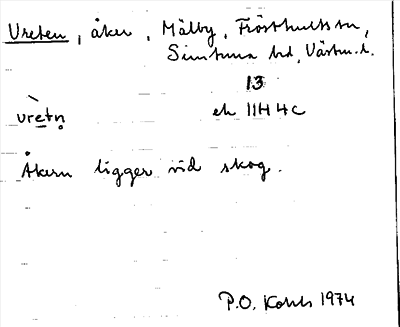 Vreten, åker, Mälby, Frösthults sn,
Simtuna hd, Västm. l.
13
ek 11H4c
vretn̥
Åkern ligger vid skog.
P.O. Kohls 1974